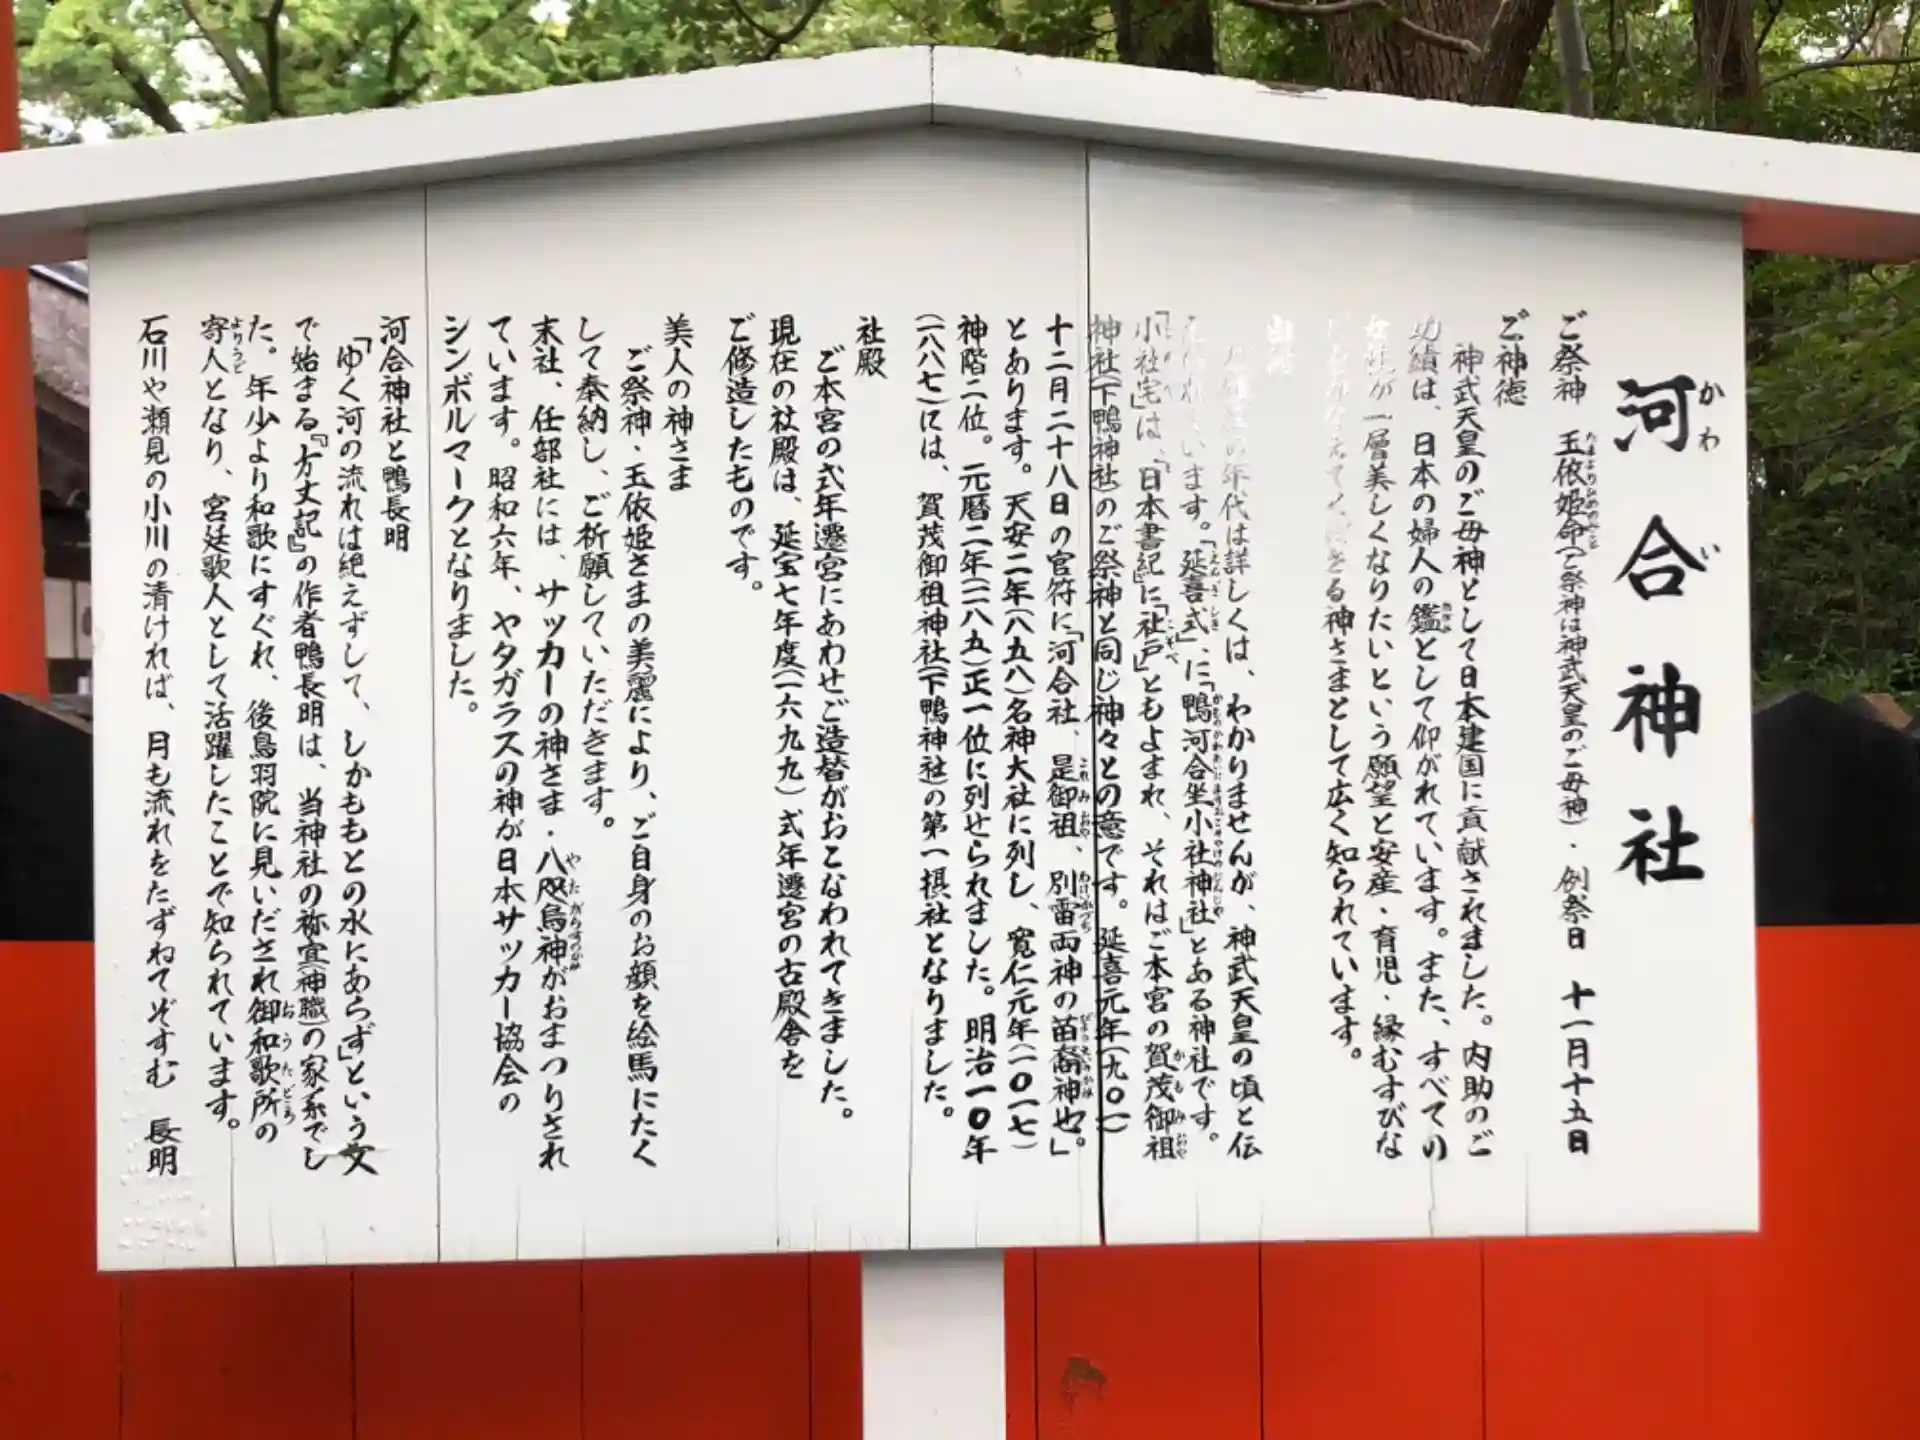 河合神社
かわい
ご祭神　玉依姫命(ご祭神は神武天皇のご母神)・例祭日　十一月十五日
ご神徳
神武天皇のご母神として日本建国に貢献されました。内助のご
功績は、日本の婦人の鑑として仰がれています。また、すべての
女性が一層美しくなりたいという願望と安産・育児・縁むすびな
る神さまとして広く知られています。
の年代は詳しくは、わかりませんが、神武天皇の頃と伝
います。「延喜式」に「鴨河合坐小社神社」とある神社です。
「小社宅」は、「日本書紀」に「社戸」ともよまれ、それはご本宮の賀茂御祖
神社(下鴨神社)のご祭神と同じ神々との意です。延喜元年(九〇一)
十二月二十八日の官符に「河合社、是御祖、別雷両神の苗裔神也」
とあります。天安二年(八五八)名神大社に列し、寛仁元年(一〇一七)
神階二位。元暦二年(一一八五)正一位に列せられました。明治一〇年
(一八八七)には、賀茂御祖神社(下鴨神社)の第一摂社となりました。
社殿
ご本宮の式年遷宮にあわせご造替がおこなわれてきました。
現在の社殿は、延宝七年度(一六九九)式年遷宮の古殿舎を
ご修造したものです。
美人の神さま
ご祭神・玉依姫さまの美麗により、ご自身のお顔を絵馬にたく
して奉納し、ご祈願していただきます。
末社、任部社には、サッカーの神さま・八咫烏神がおまつりされ
ています。昭和六年、ヤタガラスの神が日本サッカー協会の
シンボルマークとなりました。
河合神社と鴨長明
「ゆく河の流れは絶えずして、しかももとの水にあらず」という文
で始まる『方丈記』の作者鴨長明は、当神社の祢宜(神職)の家系でし
た。年少より和歌にすぐれ、後鳥羽院に見いだされ御和歌所の
寄人となり、宮廷歌人として活躍したことで知られています。
石川や瀬見の小川の清ければ、月も流れをたずねてぞすむ　長明